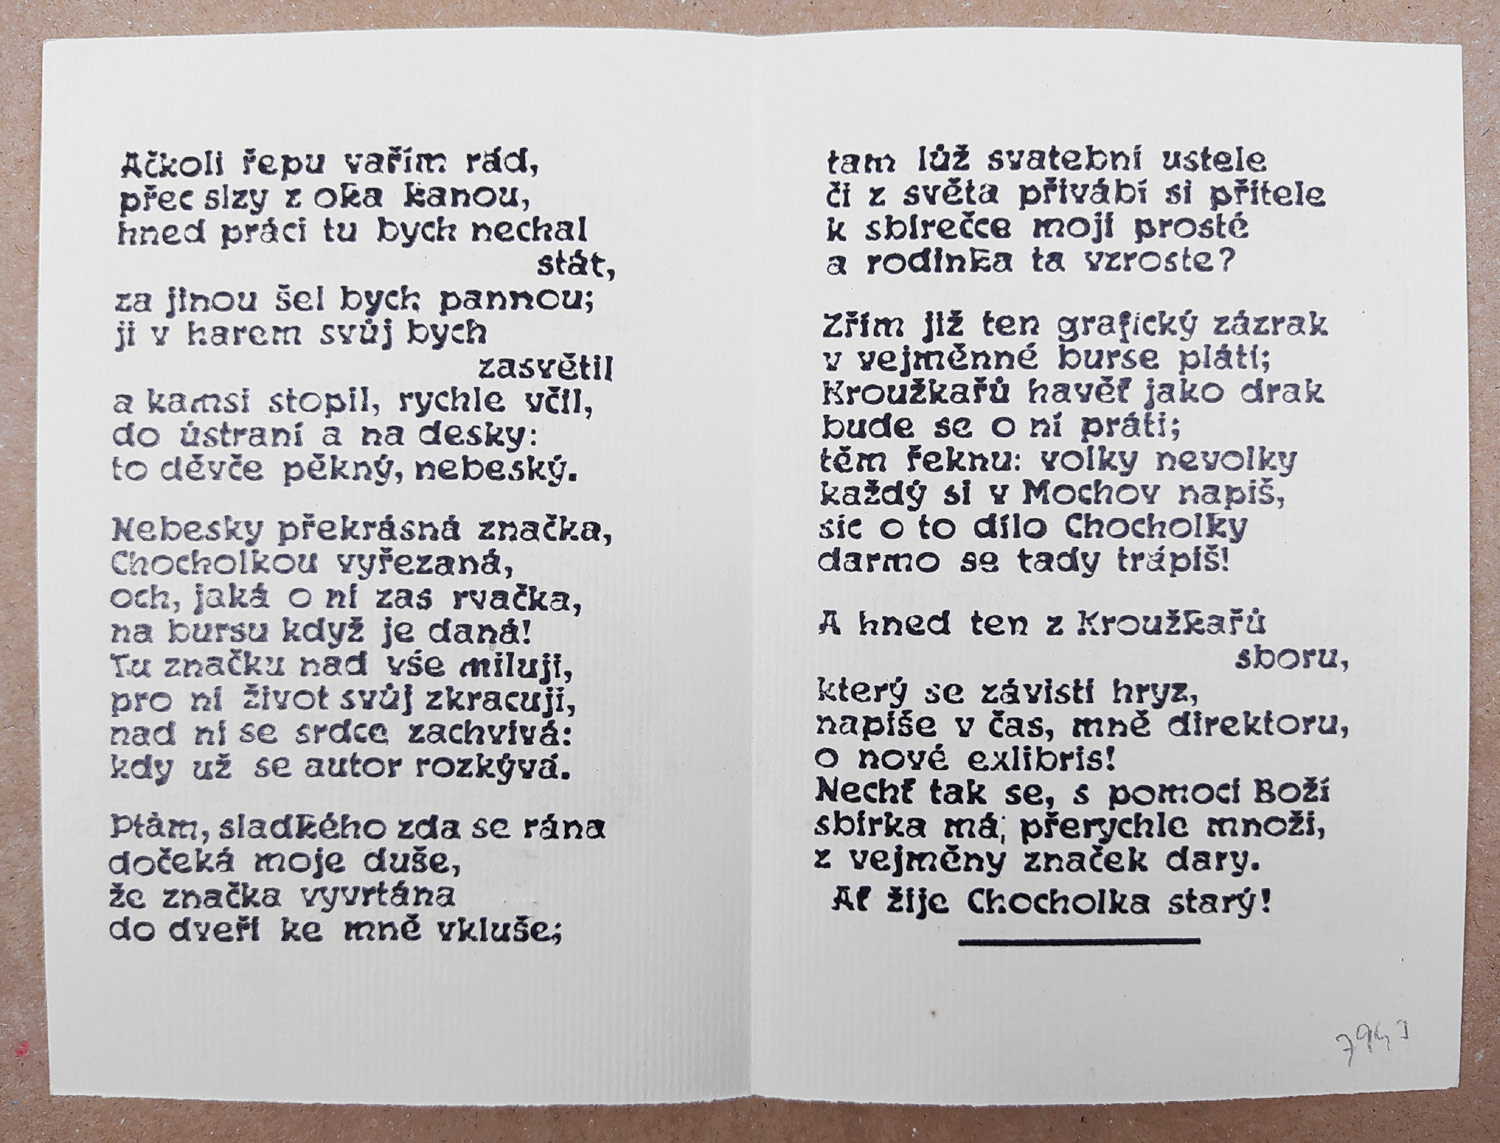 Ačkoli řepu vařím rád,
přec slzy z oka kanou,
hned práci tu bych nechal
stát,
za jinou šel bych pannou;
ji v harem svůj bych
zasvětil
a kamsi stopil, rychle včil,
do ústraní a na desky:
to děvče pěkný, nebeský.
Nebesky překrásná značka,
Chocholkou vyřezaná,
och, jaká o ní zas rvačka,
na bursu když je daná!
Tu značku nad vše miluji,
pro ni život svůj zkracuji,
nad ní se srdce zachvívá:
kdy už se autor rozkývá.
Ptám, sladkého zda se rána
dočeká moje duše,
že značka vyvrtána
do dveří ke mně vkluše;
tam lůž svatební ustele
či z světa přivábí si přítele
k sbírečce mojí prosté
a rodinka ta vzroste?
Zřím již ten grafický zázrak
v vejměnné burse pláti;
Kroužkařů havěť jako drak
bude se o ní práti;
těm řeknu: volky nevolky
každý si v Mochov napiš,
sic o to dílo Chocholky
darmo se tady trápíš!
A hned ten z Kroužkařů
sboru,
který se závistí hryz,
napíše v čas, mně direktoru,
o nové exlibris!
Nechť tak se, s pomocí Boží
sbírka má, přerychle množí,
z vejměny značek dary.
Ať žije Chocholka starý!
7943